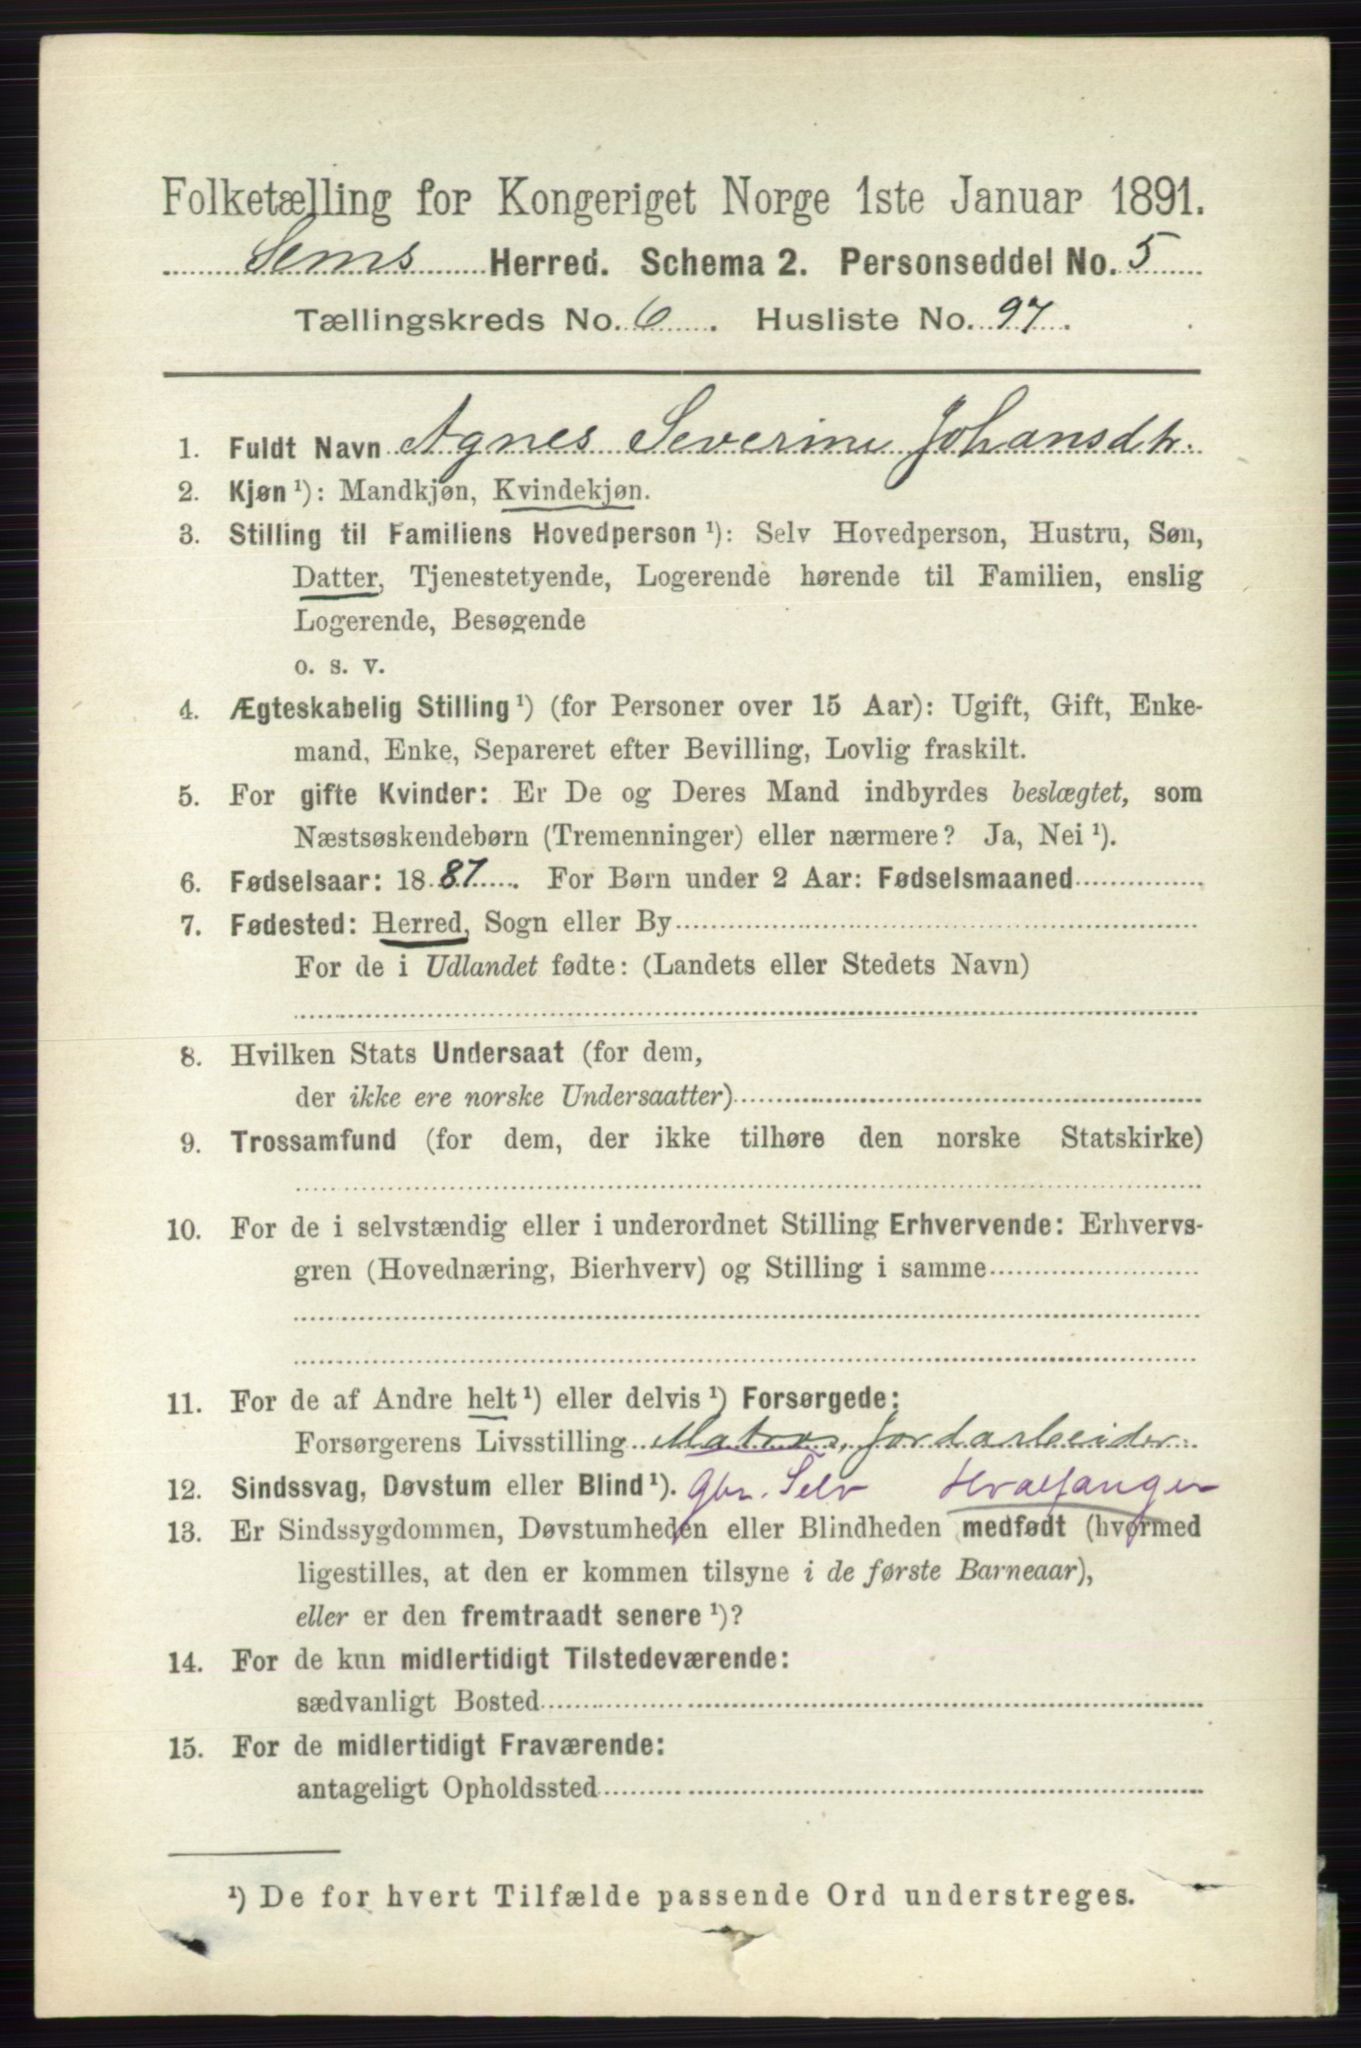 Folketælling for Kongeriget Norge 1ste Januar 1891.
Sems Herred. Schema 2. Personseddel No. 5
Tællingskreds No. 6. Husliste No. 97.
1. Fuldt Navn Agnes Severine Johansdtr.
2. Kjøn ¹): Mandkjøn, Kvindekjøn.
3. Stilling til Familiens Hovedperson ¹): Selv Hovedperson, Hustru, Søn,
Datter, Tjenestetyende, Logerende hørende til Familien, enslig
Logerende, Besøgende
o. s. v.
4. Ægteskabelig Stilling ¹) (for Personer over 15 Aar): Ugift, Gift, Enke-
mand, Enke, Separeret efter Bevilling, Lovlig fraskilt.
5. For gifte Kvinder: Er De og Deres Mand indbyrdes beslægtet, som
Næstsøskendebørn (Tremenninger) eller nærmere? Ja, Nei ¹).
6. Fødselsaar: 1887. For Børn under 2 Aar: Fødselsmaaned
7. Fødested: Herred, Sogn eller By
For de i Udlandet fødte: (Landets eller Stedets Navn)
8. Hvilken Stats Undersaat (for dem,
der ikke ere norske Undersaatter)
9. Trossamfund (for dem, der ikke tilhøre den norske Statskirke)
10. For de i selvstændig eller i underordnet Stilling Erhvervende: Erhvervs-
gren (Hovednæring, Bierhverv) og Stilling i samme
11. For de af Andre helt ¹) eller delvis ¹) Forsørgede:
Forsørgerens Livsstilling Matros, Jordarbeider.
12. Sindssvag, Døvstum eller Blind ¹). Gbr. Selv Hvalfanger
13. Er Sindssygdommen, Døvstumheden eller Blindheden medfødt (hvormed
ligestilles, at den er kommen tilsyne i de første Barneaar),
eller er den fremtraadt senere ¹)?
14. For de kun midlertidigt Tilstedeværende:
sædvanligt Bosted
15. For de midlertidigt Fraværende:
antageligt Opholdssted
¹) De for hvert Tilfælde passende Ord understreges.